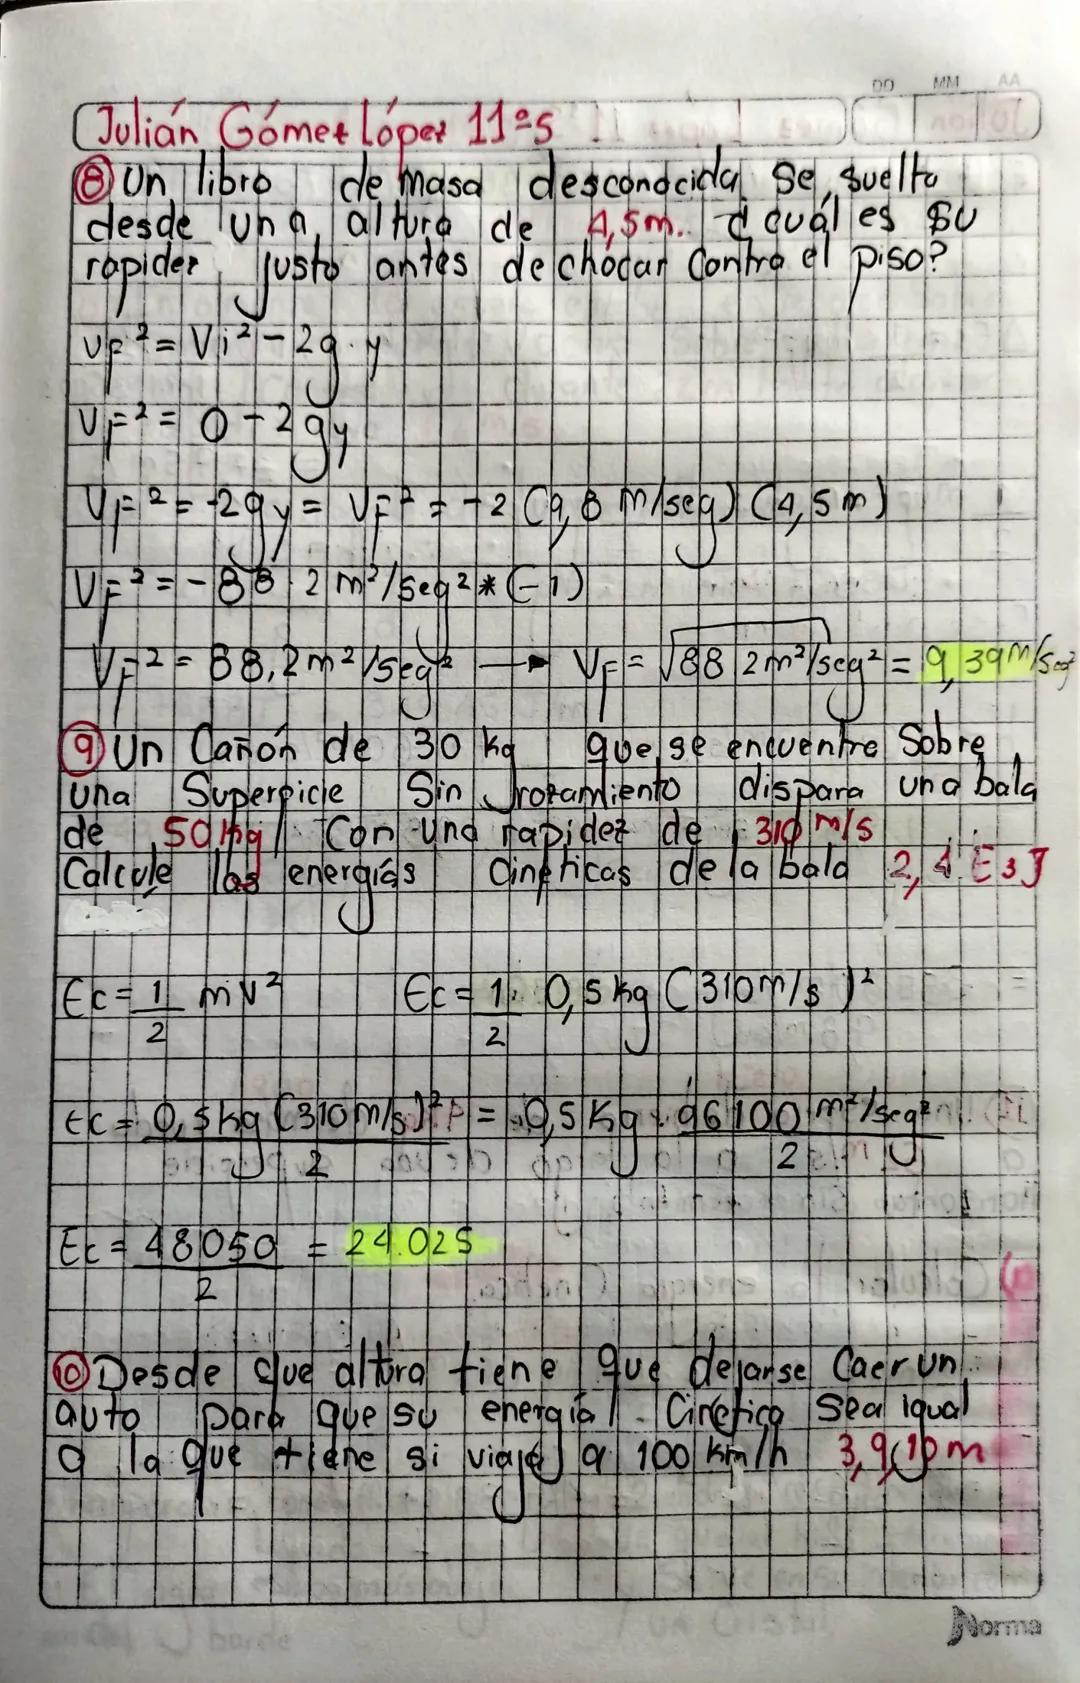 DD MM AA
Julián Gómez López 11°5
⑧ Un libro de masa descondcida se suelta
desde una altura de 4,5m. ¿cuál es su
rapidez justo antes de chocar contra el piso?
VF² = Vi² - 2g·y
VF² = 0 - 2gy
VF² = -2gy = VF² = -2 (9,8 m/seg) (4,5m)
VF² = -88.2 m²/seg² * (-1)
VF² = 88,2m²/seg² → VF = √88,2m²/seg² = 9,39m/seg
⑨ Un Cañón de 30 kg que se encuentre Sobre
una Superficie Sin rozamiento dispara una bala
de 50kg Con una rapidez de 310 m/s
Calcule las energías Cinéticas de la bala 2,4 E3J
Ec = 1/2 mv² Ec = 1/2 · 0,5 kg (310m/s)²
Ec = 0,5kg (310m/s)²/2 = 0,5 Kg · 96100 m²/seg²/2
Ec = 48050/2 = 24.025
⑩ Desde que altura tiene que dejarse Caer un
auto para que su energía Cinética Sea igual
a la que tiene si viaja a 100 km/h 3,9(10m
Norma